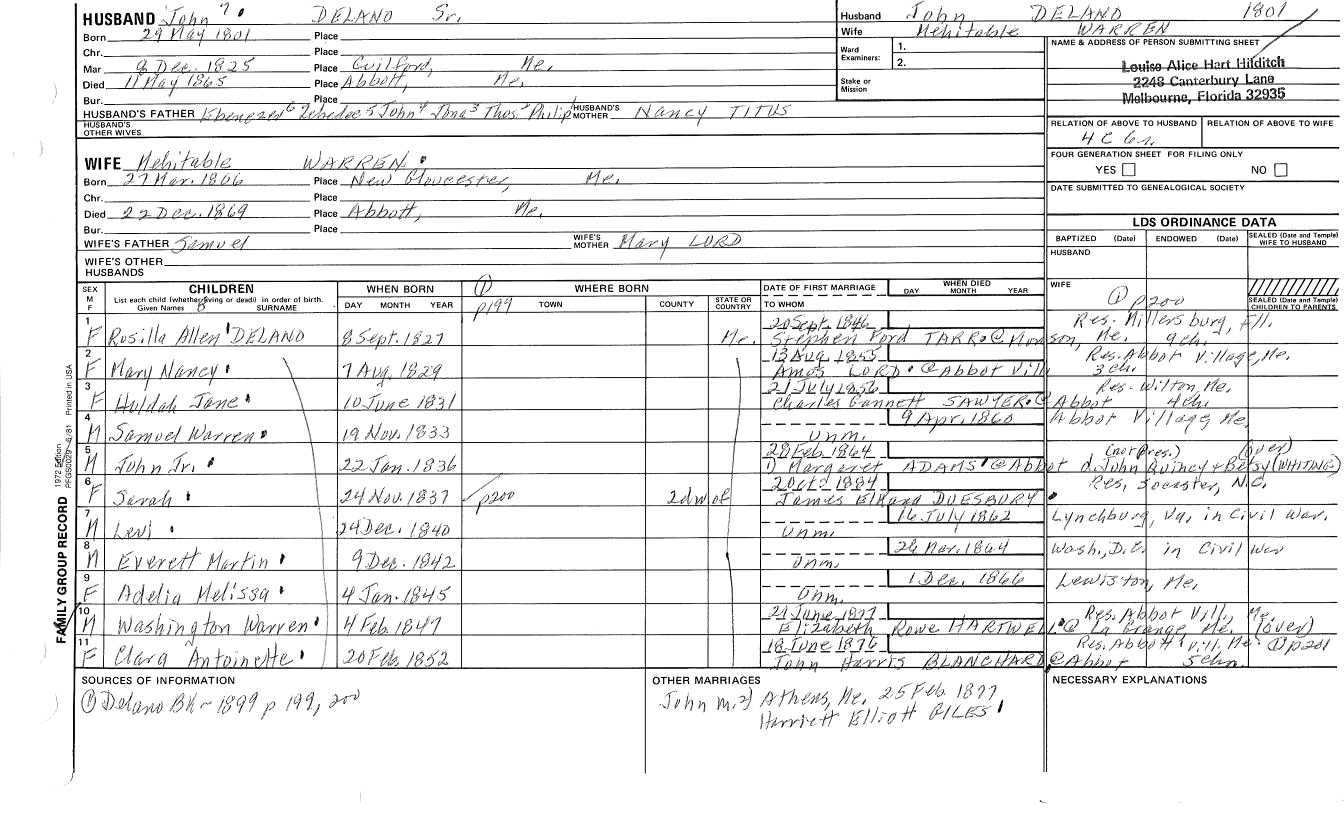 HUSBAND John 7. DELANO Sr.
Born 29 May 1801 Place
Chr. Place
Mar 8 Dec. 1825 Place Guilford, Me.
Died 11 May 1865 Place Abbott, Me.
Bur. Place
HUSBAND'S FATHER Ebenezer 6 Zebedee 5 John 4 Jona 3 Thos. 2 Philip 1 HUSBAND'S MOTHER Nancy TITUS
HUSBAND'S OTHER WIVES
Husband John DELANO 1801
Wife Mehitable WARREN
Ward Examiners: 1.
2.
Stake or Mission
NAME & ADDRESS OF PERSON SUBMITTING SHEET
Louise Alice Hart Hilditch
2248 Canterbury Lane
Melbourne, Florida 32935
RELATION OF ABOVE TO HUSBAND RELATION OF ABOVE TO WIFE
4 C 6r.
FOUR GENERATION SHEET FOR FILING ONLY
YES NO
DATE SUBMITTED TO GENEALOGICAL SOCIETY
WIFE Mehitable WARREN
Born 27 Mar. 1806 Place New Gloucester, Me.
Chr. Place
Died 22 Dec. 1869 Place Abbott, Me.
Bur. Place
WIFE'S FATHER Samuel WIFE'S MOTHER Mary LORD
WIFE'S OTHER HUSBANDS
LDS ORDINANCE DATA
BAPTIZED (Date) ENDOWED (Date) SEALED (Date and Temple) WIFE TO HUSBAND
HUSBAND
WIFE
① p200
SEALED (Date and Temple) CHILDREN TO PARENTS
SEX M F
CHILDREN
List each child (whether living or dead) in order of birth.
Given Names 8 SURNAME
WHEN BORN
DAY MONTH YEAR
① p199
WHERE BORN
TOWN COUNTY STATE OR COUNTRY
DATE OF FIRST MARRIAGE
TO WHOM
WHEN DIED
DAY MONTH YEAR
1 F Rosilla Allen DELANO 8 Sept. 1827 Me. 20 Sept. 1846 Stephen Ford TARR @ Monson, Me. 9 ch. Res. Millersburg, Ill.
2 F Mary Nancy 7 Aug. 1829 13 Aug. 1855 Amos LORD @ Abbot Vill 3 ch. Res. Abbot Village, Me.
3 F Huldah Jane 10 June 1831 21 July 1856 Charles Gannett SAWYER @ Abbot 4 ch. Res. Wilton, Me.
4 M Samuel Warren 19 Nov. 1833 unm. 9 Apr. 1860 Abbot Village, Me.
5 M John Jr. 22 Jan. 1836 28 Feb. 1864 1) Margaret ADAMS @ Abbot d. John Quincy & Betsy (WHITING) (not Pres.) (over)
6 F Sarah 24 Nov. 1837 p200 2d w of 20 Oct. 1884 James Elhana DUESBURY Res. Socaster, N.C.
7 M Levi 24 Dec. 1840 unm. 16 July 1862 Lynchburg, Va. in Civil War.
8 M Everett Martin 9 Dec. 1842 unm. 26 Mar. 1864 Wash., D.C. in Civil War
9 F Adelia Melissa 4 Jan. 1845 unm. 1 Dec. 1866 Lewiston, Me.
10 M Washington Warren 4 Feb. 1847 21 June 1877 Elizabeth Rowe HARTWELL @ La Grange, Me. (over) Res. Abbot Vill., Me.
11 F Clara Antoinette 20 Feb. 1852 18 June 1876 John Harris BLANCHARD @ Abbot 5 chn. Res. Abbott Vill. Me. ① p201
FAMILY GROUP RECORD
1972 Edition Printed in USA
SOURCES OF INFORMATION
① Delano BK - 1899 p 199, 200
OTHER MARRIAGES
John m. 2) Athens, Me. 25 Feb 1877
Harriett Elliott GILES
NECESSARY EXPLANATIONS